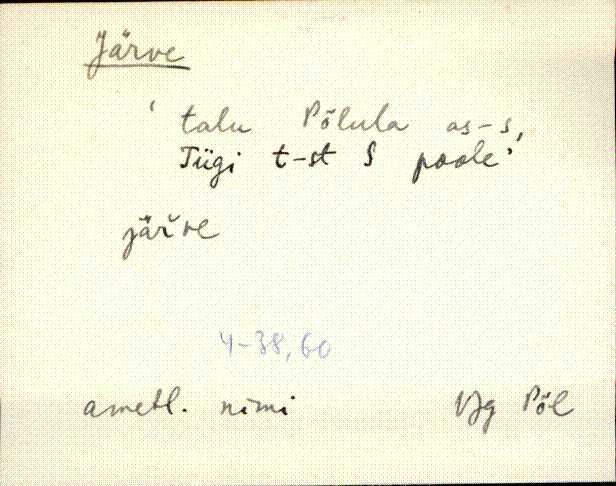 Järve
‘ talu Põlula as-s,
Tiigi t-st S poole’
järve
4-38,60
ametl. nimi VJg Põl